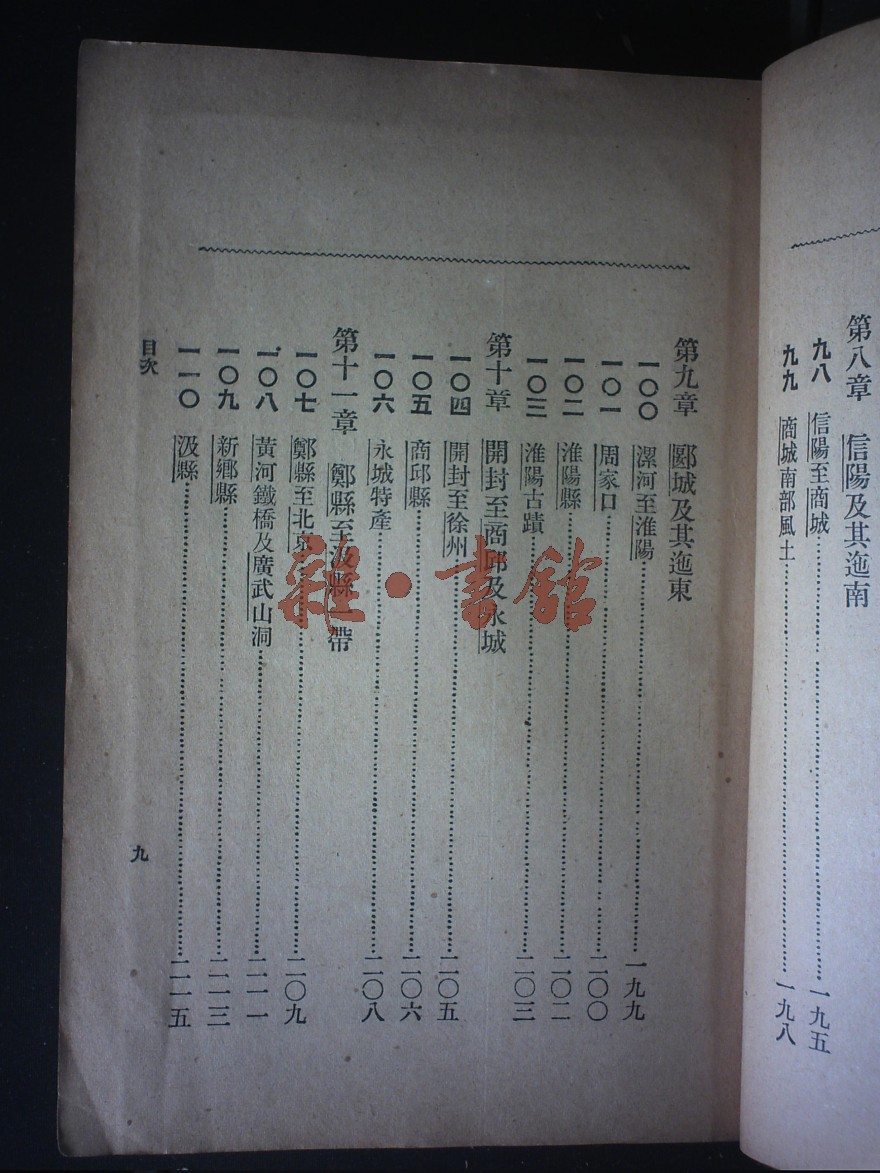 第八章　信陽及其迤南
九八　信陽至商城……一九五
九九　商城南部風土……一九八
第九章　郾城及其迤東
一〇〇　漯河至淮陽……一九九
一〇一　周家口……二〇〇
一〇二　淮陽縣……二〇二
一〇三　淮陽古蹟……二〇三
第十章　開封至商邱及永城
一〇四　開封至徐州……二〇五
一〇五　商邱縣……二〇六
一〇六　永城特產……二〇八
第十一章　鄭縣至汲縣一帶
一〇七　鄭縣至北京……二〇九
一〇八　黃河鐵橋及廣武山洞……二一一
一〇九　新鄉縣……二一三
一一〇　汲縣……二一五
目次
九
雜·書館